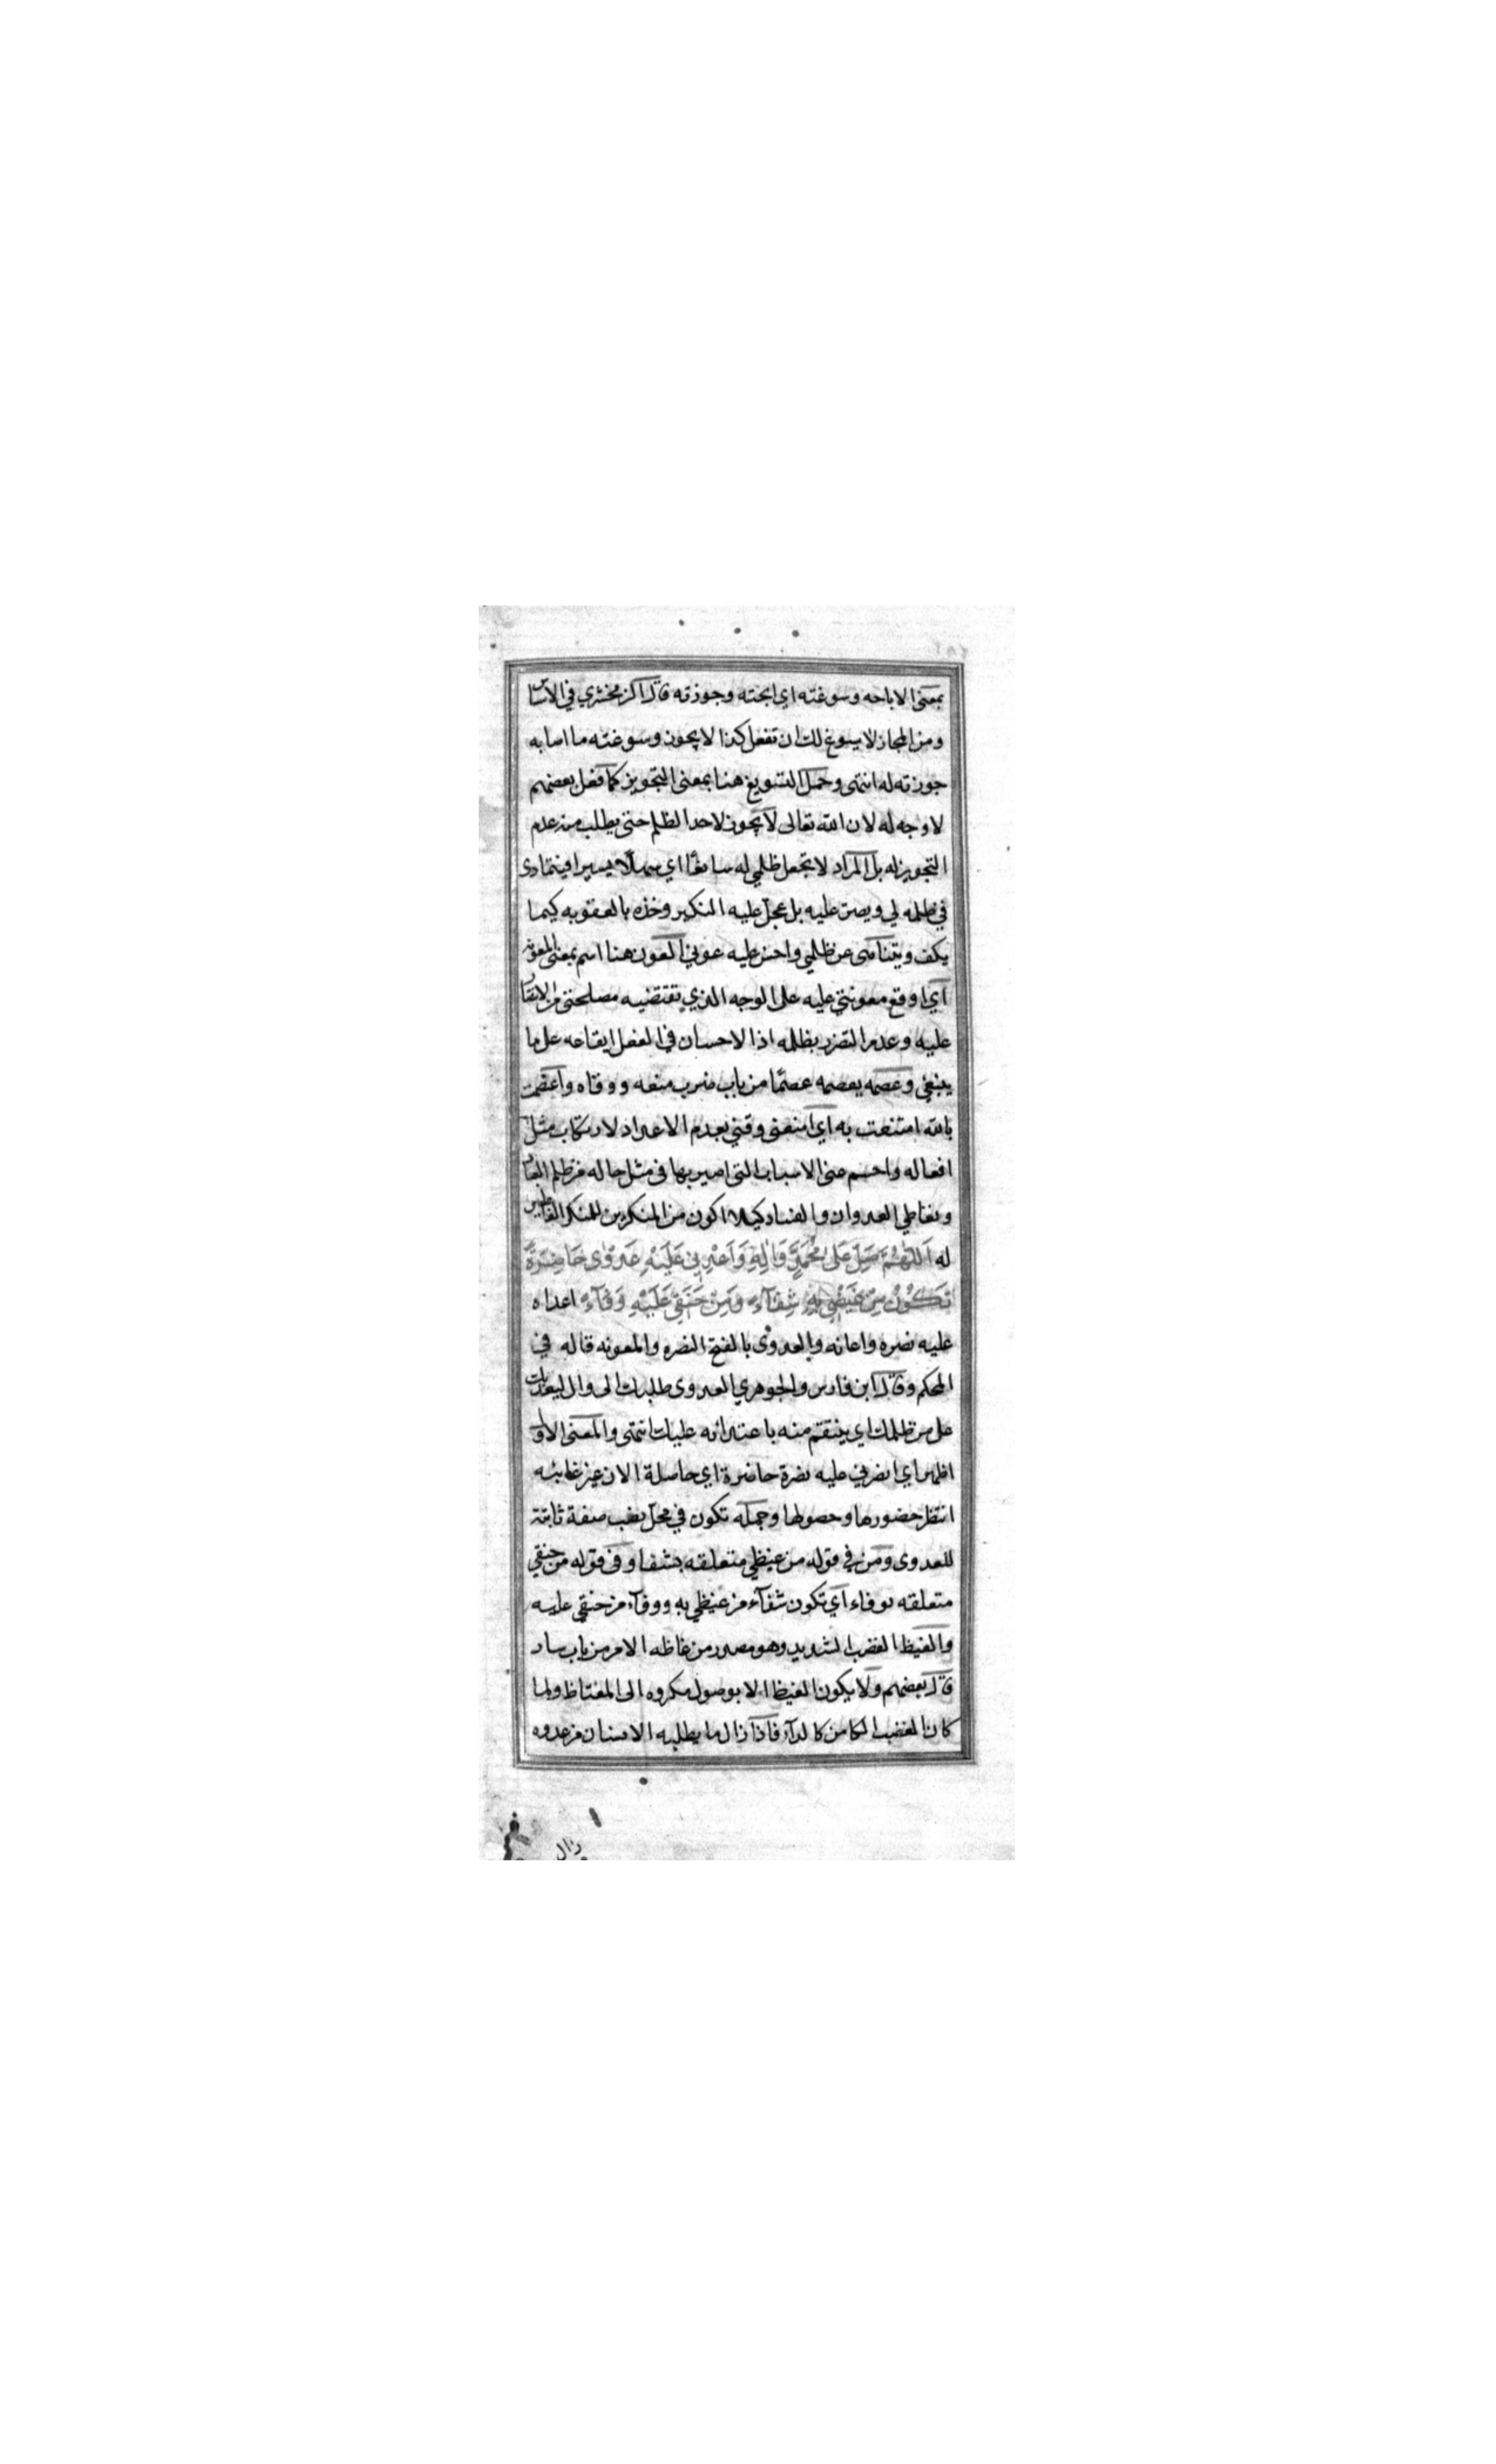 بمعنى الاباحه وسوغته اي ابحته وجوزته قال الزمخشري في الاساس
ومن المجاز لا يسوغ لك ان تفعل كذا لا يجوز وسوغته ما اصابه
جوزته له انتهى وحمل التسويغ هنا بمعنى التجويز كما فعل بعضهم
لا وجه له لان الله تعالى لا يجوز لاحد الظلم حتى يطلب منه عدم
التجويز له بل المراد لا تجعل ظلمي له سائغا اي سهلا يسيرا فيتمادى
في ظلمه لي ويصر عليه بل عجل عليه النكير وخذه بالعقوبه كيما
يكف ويتناهى عن ظلمي واحسن عليه عوني العون هنا اسم بمعنى المعونه
اي اوقع معونتي عليه على الوجه الذي تقتضيه مصلحتي من الانتقام
عليه وعدم التضرر بظلمه اذ الاحسان في الفعل ايقاعه على ما
ينبغي وعصمه يعصمه عصما من باب ضرب منعه ووقاه واعتصمت
بالله امتنعت به اي امنعني وقني بعدم الاعداد لارتكاب مثل
افعاله واحسم عني الاسباب التي اصير بها في مثل حاله من ظلم العباد
وتعاطي العدوان والفساد كيلا اكون من المنكرين للمنكر الفاعلين
له اَللّٰهُمَّ صَلِّ عَلٰى مُحَمَّدٍ وَاٰلِهِ وَاَعْدِنِي عَلَيْهِ عَدْوٰى حَاضِرَةً
تَكُونُ مِنْ غَيْظِي بِهِ شِفَآءً وَمِنْ حَنَقِي عَلَيْهِ وَفَآءً اعداه
عليه نصره واعانه والعدوى بالفتح النصره والمعونه قاله في
المحكم وقال ابن فارس والجوهري العدوى طلبك الى وال ليعديك
على من ظلمك اي ينتقم منه باعتدائه عليك انتهى والمعنى الاول
اظهر اي انصرني عليه نصرة حاضرة اي حاصلة الان غير غائبه
انتظر حضورها وحصولها وجمله تكون في محل نصب صفة ثانية
للعدوى ومن في قوله من غيظي متعلقه بشفا وفي قوله من حنقي
متعلقه بوفاء اي تكون شفآء من غيظي به ووفآء من حنقي عليه
والغيظ الغضب الشديد وهو مصدر من غاظه الامر من باب سار
قال بعضهم ولا يكون الغيظ الا بوصول مكروه الى المغتاظ ولما
كان الغضب الكامن كالدآء فاذا زال ما يطلبه الانسان من عدوه
زال